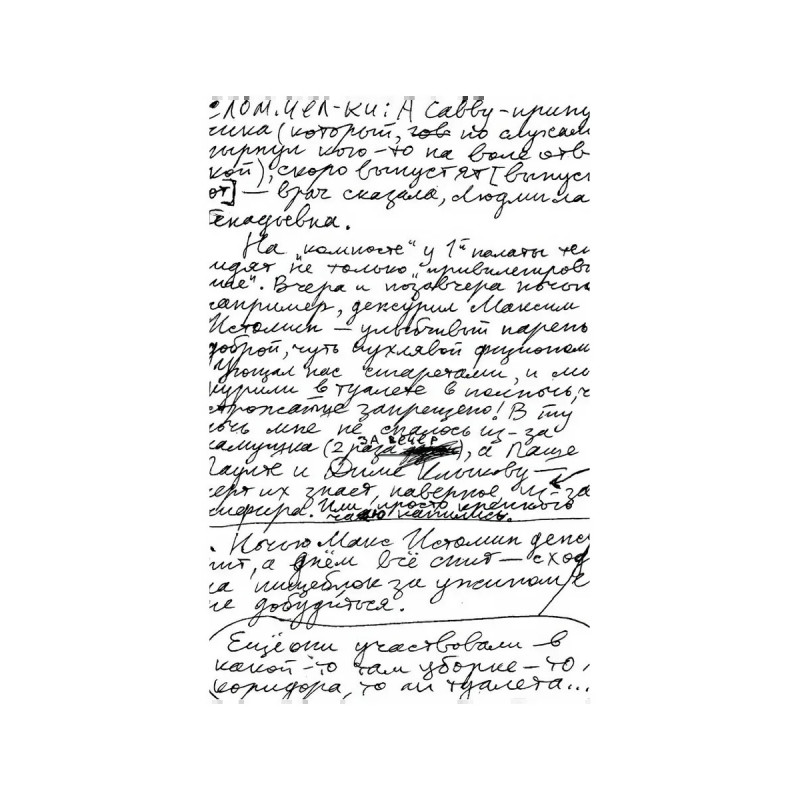 СЛОМ.ЧЕЛ-КИ: А Савву-припу
чика (который, гов по случаю
пырнул кого-то на воле отв
кой), скоро выпустят [выпус
от] — врач сказала, Людмила
Генадьевна.
На "компосте" у 1й палаты те
идят не только "привилегиров
ные". Вчера и позавчера ночью
например, дежурил Максим
Истомин — улыбчивый парень
доброй, чуть пухлявой физионом
Угощал нас сигаретами, и мы
курили в туалете в полночь, ч
строжайше запрещено! В ту
ночь мне не спалось из-за
камушка (2 раза ЗА ВЕЧЕР), а Паше
Гаулте и Диме Клыкову —
черт их знает, наверное, из-за
чефира. Или просто крепкого
чаю напились.
. Ночью Макс Истомин дежу
ит, а днём всё спит — сход
на пищеблок за ужином
не добудиться.
Ещё они участвовали в
какой-то там уборке — то,
коридора, то ли туалета...